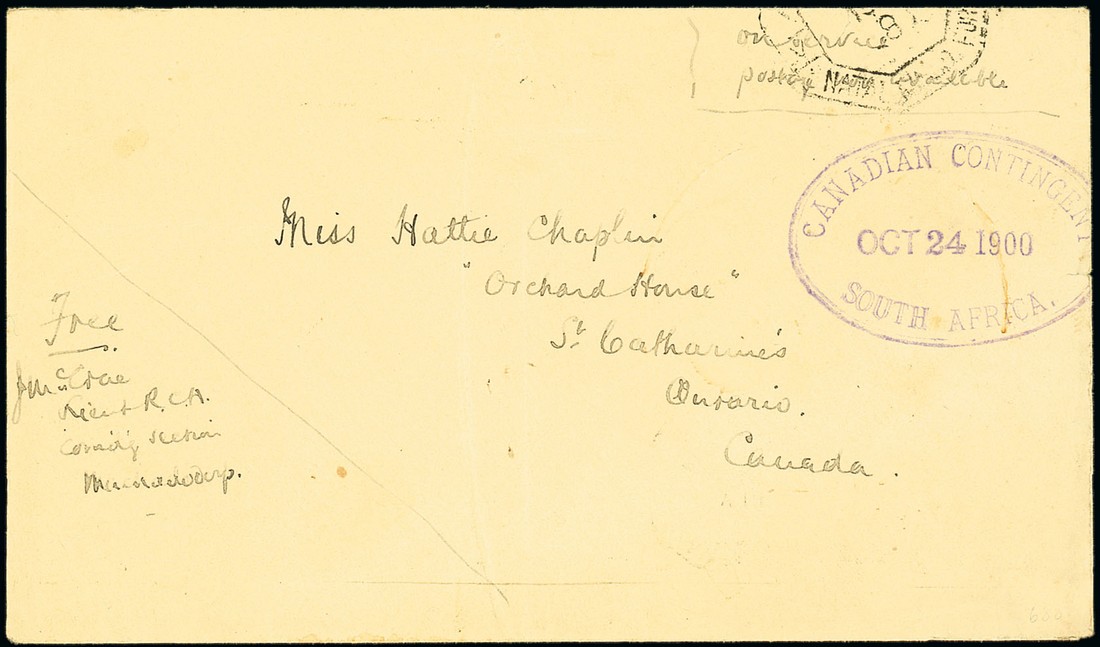 on service
postage not available
NATAL FIELD
CANADIAN CONTINGENT
OCT 24 1900
SOUTH AFRICA.
Miss Hattie Chaplin
"Orchard House"
St. Catharine's
Ontario.
Canada.
Free
J McCrae
Lieut R.C.A.
Comd'g section